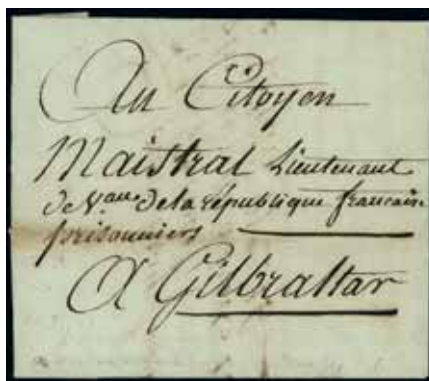 Au Citoyen
Maistral Lieutenant
de V.au de la république francaise
prisonniers
A Gilbraltar